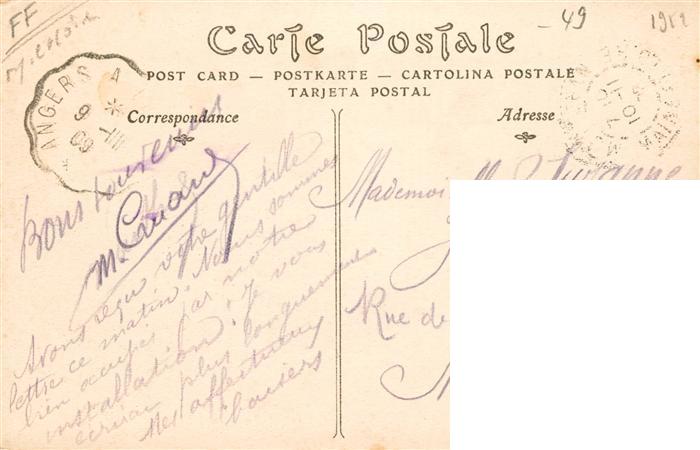 FF
- 49
Carte Postale
POST CARD — POSTKARTE — CARTOLINA POSTALE
TARJETA POSTAL
ANGERS A
9 -III
09
Correspondance
Adresse
Bons souvenirs
Avons reçu votre gentille
lettre ce matin. Nous sommes
bien occupés par notre
installation. Je vous
écrirai plus longuement
Mes affectueux
baisers
Mademoi
Suzanne
Rue de